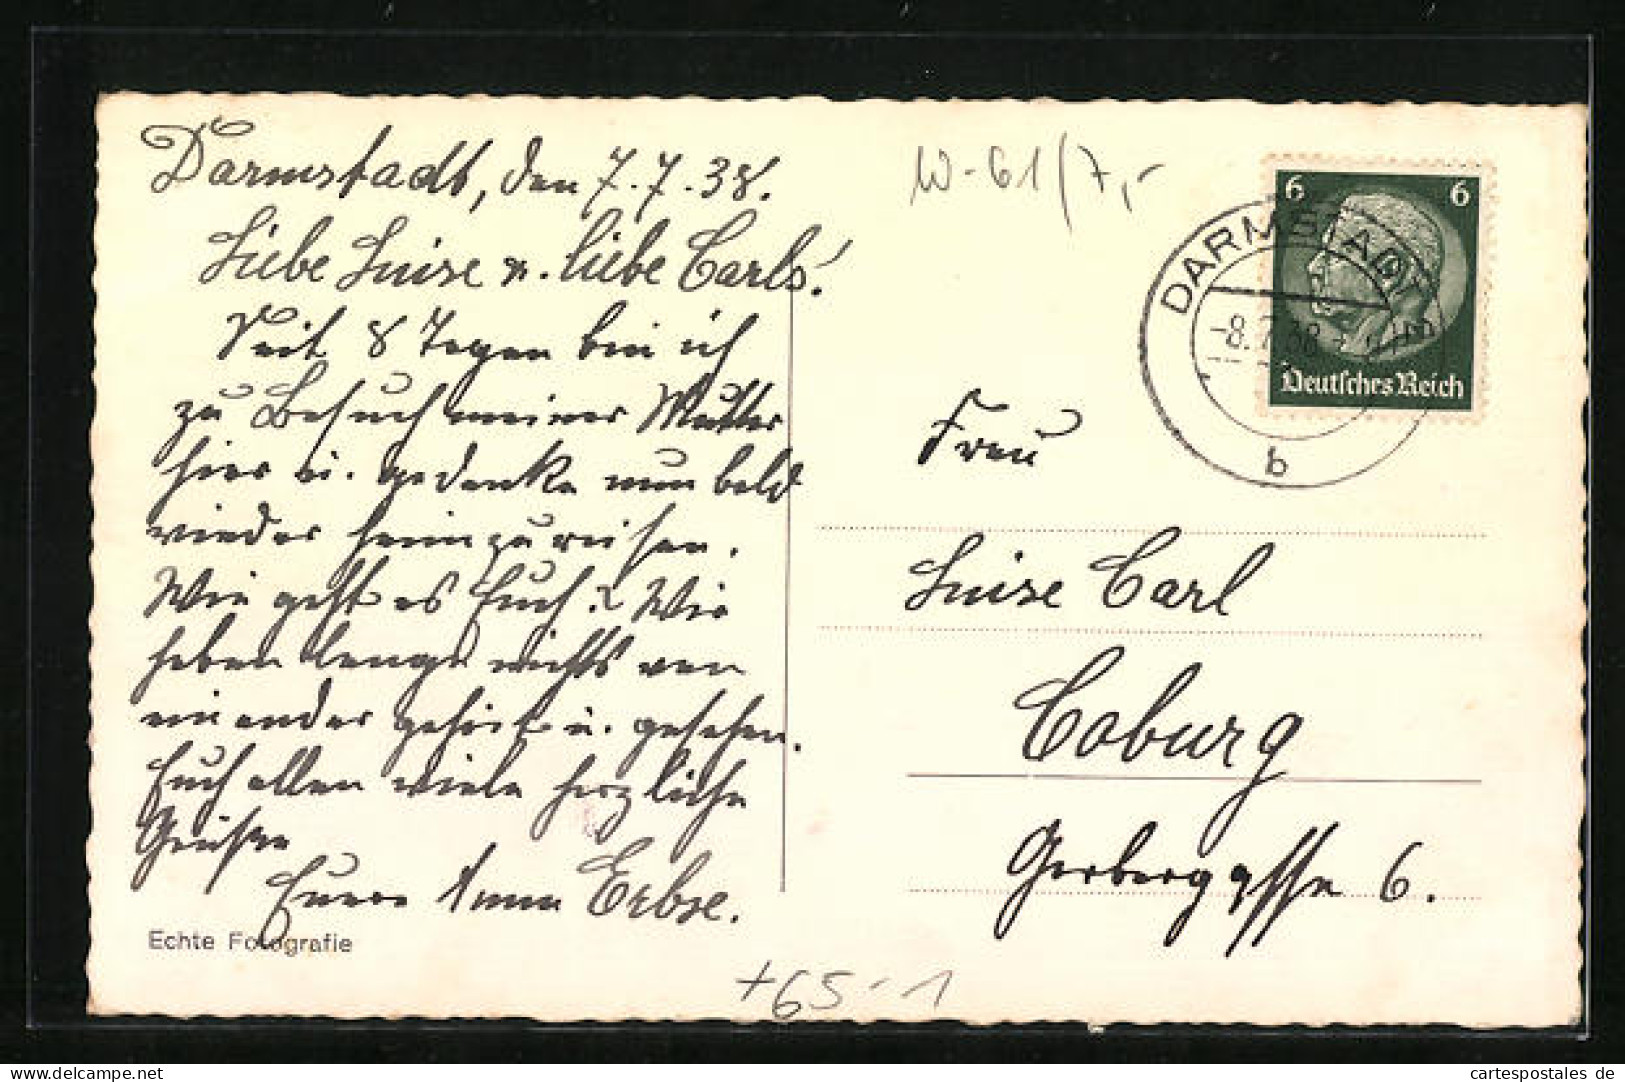 Darmstadt, den 7.7.38.
Liebe Luise u. liebe Carls!
Seit 8 Tagen bin ich
zu Besuch meiner Mutter
hier u. gedenke nun bald
wieder heimzureisen.
Wie geht es Euch? Wir
haben lange nichts von
einander gehört u. gesehen.
Euch allen viele herzliche
Grüße
Eure Anna Erbse.
Echte Fotografie
W-61/7,-
6 6
DARMSTADT
-8.7.38
b
Deutsches Reich
Frau
Luise Carl
Coburg
Gerbergasse 6.
+65-1
cartespostales.de